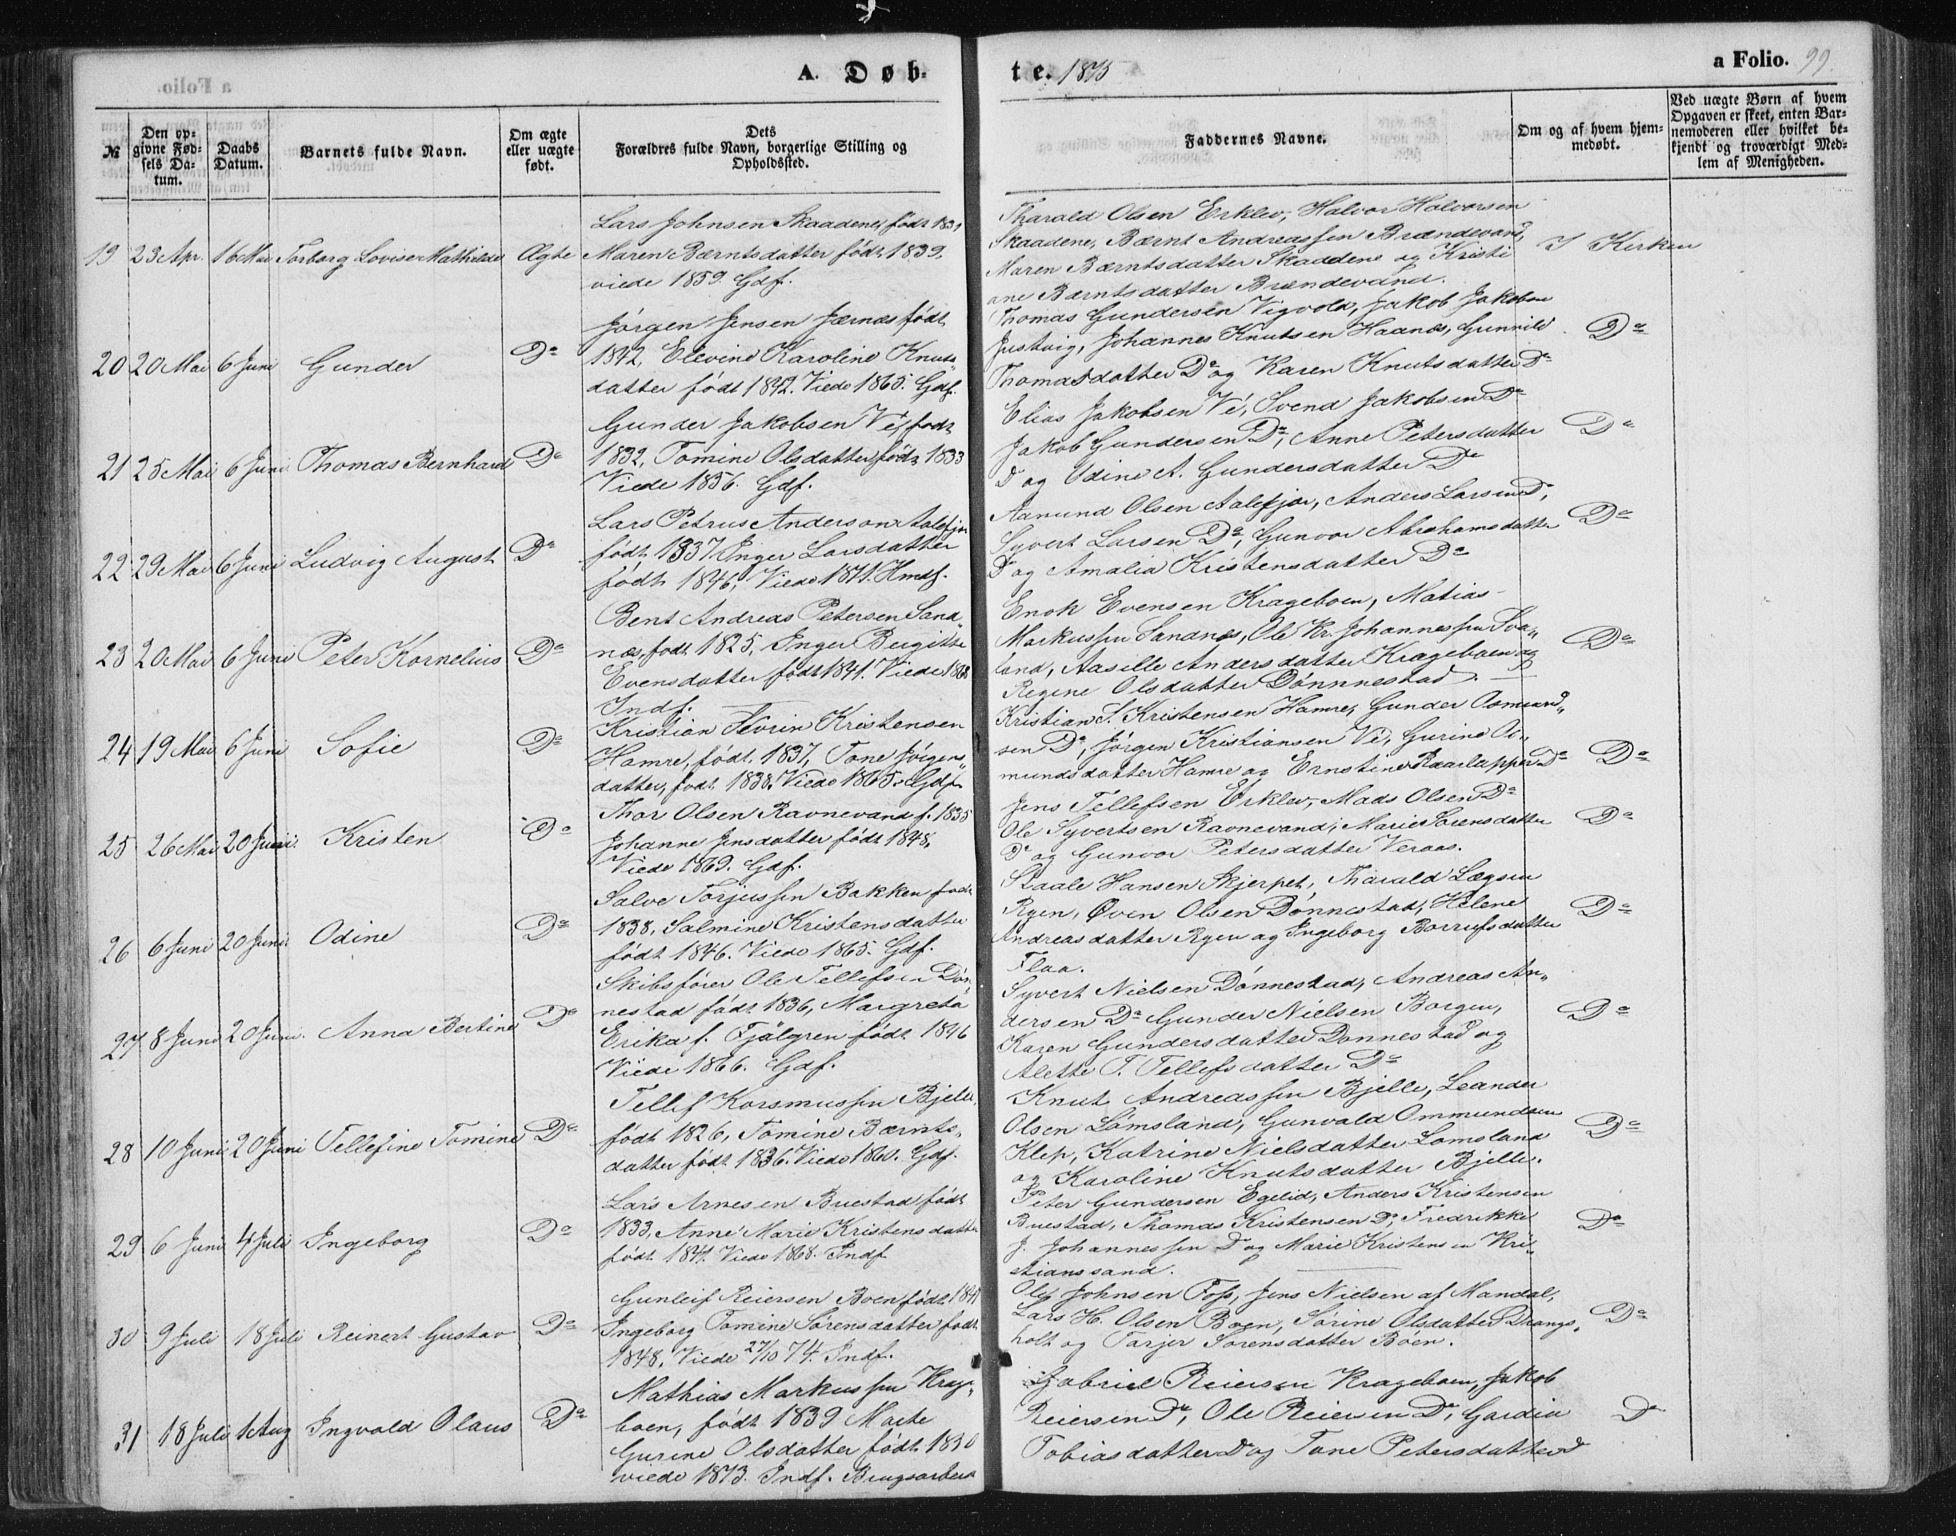 a Folio.
A. Døb-
te. 1875
a Folio. 99.
№
Den opgivne Fødsels Datum.
Daabs Datum.
Barnets fulde Navn.
Om ægte eller uægte født.
Dets Forældres fulde Navn, borgerlige Stilling og Opholdssted.
Faddernes Navne.
Om og af hvem hjemmedøbt.
Ved uægte Børn af hvem Opgaven er skeet, enten Barnemoderen eller hvilket bekjendt og troværdigt Medlem af Menigheden.
19 23 Apr. 16 Mai Torborg Lovise Mathilde Ægte
Lars Johnsen Skaadene, født 1831
Maren Bærntsdatter født 1839,
viede 1859. Gdf.
Tharald Olsen Erklev, Halvor Halvorsen
Skaadene, Bærnt Andreassen Brændevand,
Maren Bærntsdatter Skaadene og Kristi
ane Bærntsdatter Brændevand.
I Kirken
20 20 Mai 6 Juni Gunder Do
Jørgen Jensen Jærnes født
1842, Elevine Karoline Knuts„
datter født 1842. Viede 1865. Gdf.
Thomas Gundersen Vigvold, Jakob Jakobsen
Justvig, Johannes Knutsen Haanes, Gunnild
Thomasdatter Do og Karen Knutsdatter Do
Do
21 25 Mai 6 Juni Thomas Bernhard Do
Gunder Jakobsen Ve, født
1832, Tomine Olsdatter født 1833
Viede 1856. Gdf.
Elias Jakobsen Ve, Svend Jakobsen Do
Jakob Gundersen Do, Anne Petersdatter
D og Udine A. Gundersdatter Do
Do
22 29 Mai 6 Juni Ludvig August Do
Lars Petrus Anderson Aalefjær
født 1837 Inger Larsdatter
født 1846, Viede 1871. Hmdf.
Aanund Olsen Aalefjær, Anders Larsen D,
Syvert Larsen Do, Gunvor Abrahamsdatter
D og Amalia Kristensdatter Do
Do
23 20 Mai 6 Juni Peter Kornelius Do
Bent Andreas Petersen Sand„
næs, født 1825, Inger Birgitte
Evensdatter født 1841. Viede 1868
Indf.
Enok Evensen Krageboen, Matias
Markussen Sandnes, Ole Kr. Johannessen Sva„
land, Aasille Andersdatter Krageboen og
Regine Olsdatter Dønnnestad.
Do
24 19 Mai 6 Juni Sofie Do
Kristian Severin Kristensen
Hamre, født 1837, Tone Jørgens„
datter, født 1838. Viede 1865. Gdf.
Kristian S. Kristensen Hamre, Gunder Osmund„
sen Do, Jørgen Kristiansen Ve, Gurine Os„
mundsdatter Hamre og Ernstine Raarlapper Do
Do
25 26 Mai 20 Juni Kristen Do
Thor Olsen Ravnevand f. 1835
Johanne Jensdatter født 1848,
Viede 1869. Gdf.
Jens Tellefsen Erklev, Mads Olsen Do
Ole Syvertsen Ravnevand, Marie Sørensdatter
Do og Gunvor Petersdatter Veraas.
Do
26 6 Juni 20 Juni Odine Do
Salve Torjussen Bakken født
1838, Salmine Kristensdatter
født 1846. Viede 1865. Gdf.
Staale Hansen Skjerpet, Tharald Lægsen
Ryen, Øven Olsen Dønnestad, Helene
Andreasdatter Ryen og Ingeborg Borrufsdatter
Flaa.
Do
27 8 Juni 20 Juni. Anna Bertine Do
Skibsfører Ole Tellefsen Døn
nestad født 1836, Margreta
Erika f. Fjälgren født 1846
Viede 1866. Gdf.
Syvert Nielsen Dønnestad, Andreas An„
dersen Do Gunder Nielsen Borgen,
Karen Gundersdatter Dønnestad og
Alette T. Tellefsdatter Do
Do
28 10 Juni 20 Juni Tellefine Tomine Do
Tellef Korsmussen Bjelle,
født 1826, Tomine Bærnts„
datter født 1836. Viede 1860. Gdf.
Knut Andreassen Bjelle, Leander
Olsen Lømsland, Gunvald Ommundsen
Klep, Katrine Nielsdatter Lømsland
og Karoline Knutsdatter Bjelle.
Do
29 6 Juni 4 Juli Ingeborg Do
Lars Arnesen Buestad født
1833, Anne Marie Kristensdatter
født 1841. Viede 1868. Indf.
Peter Gundersen Egelid, Anders Kristensen
Buestad, Thomas Kristensen Do, Fredrikke
J. Johannessen D og Marie Kristensen Kri„
stianssand.
Do
30 9 Juli 18 Juli Reinert Gustav Do
Gunleif Reiersen Boen født 1841
Ingeborg Tomine Sørensdatter født
1848, Viede 27/10 74. Indf.
Ole Johnsen Foss, Jens Nielsen af Mandal,
Lars H. Olsen Boen, Sørine Olsdatter Drangs„
holt og Tarjer Sørensdatter Bøen.
Do
31 18 Juli 1 Aug Ingvald Olaus Do
Mathias Markussen Krage„
boen, født 1839 Marte
Gurine Olsdatter født 1830
viede 1873. Indf. Brugsarbeid
Gabriel Reiersen Krageboen, Jakob
Reiersen Do, Ole Reiersen Do, Gardia
Tobiasdatter D og Tone Petersdatter D
Do